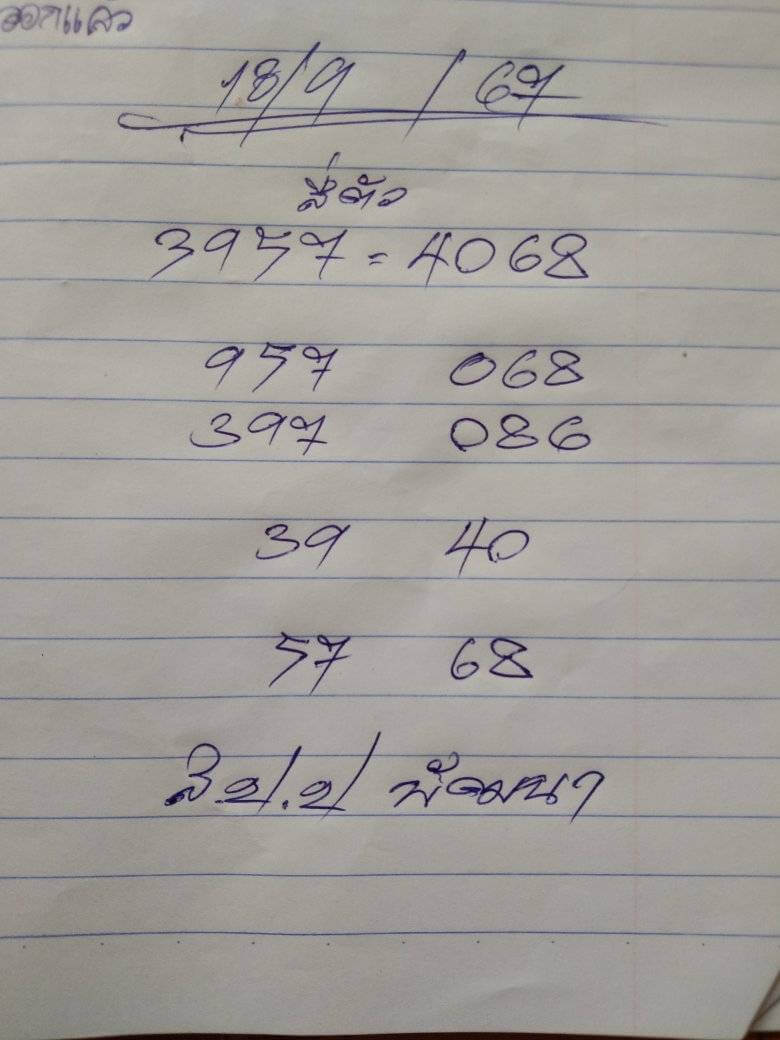 ออกแล้ว
18/9/67
สี่ตัว
3957 = 4068
957 068
397 086
39 40
57 68
ส.ป.ป พัฒนา